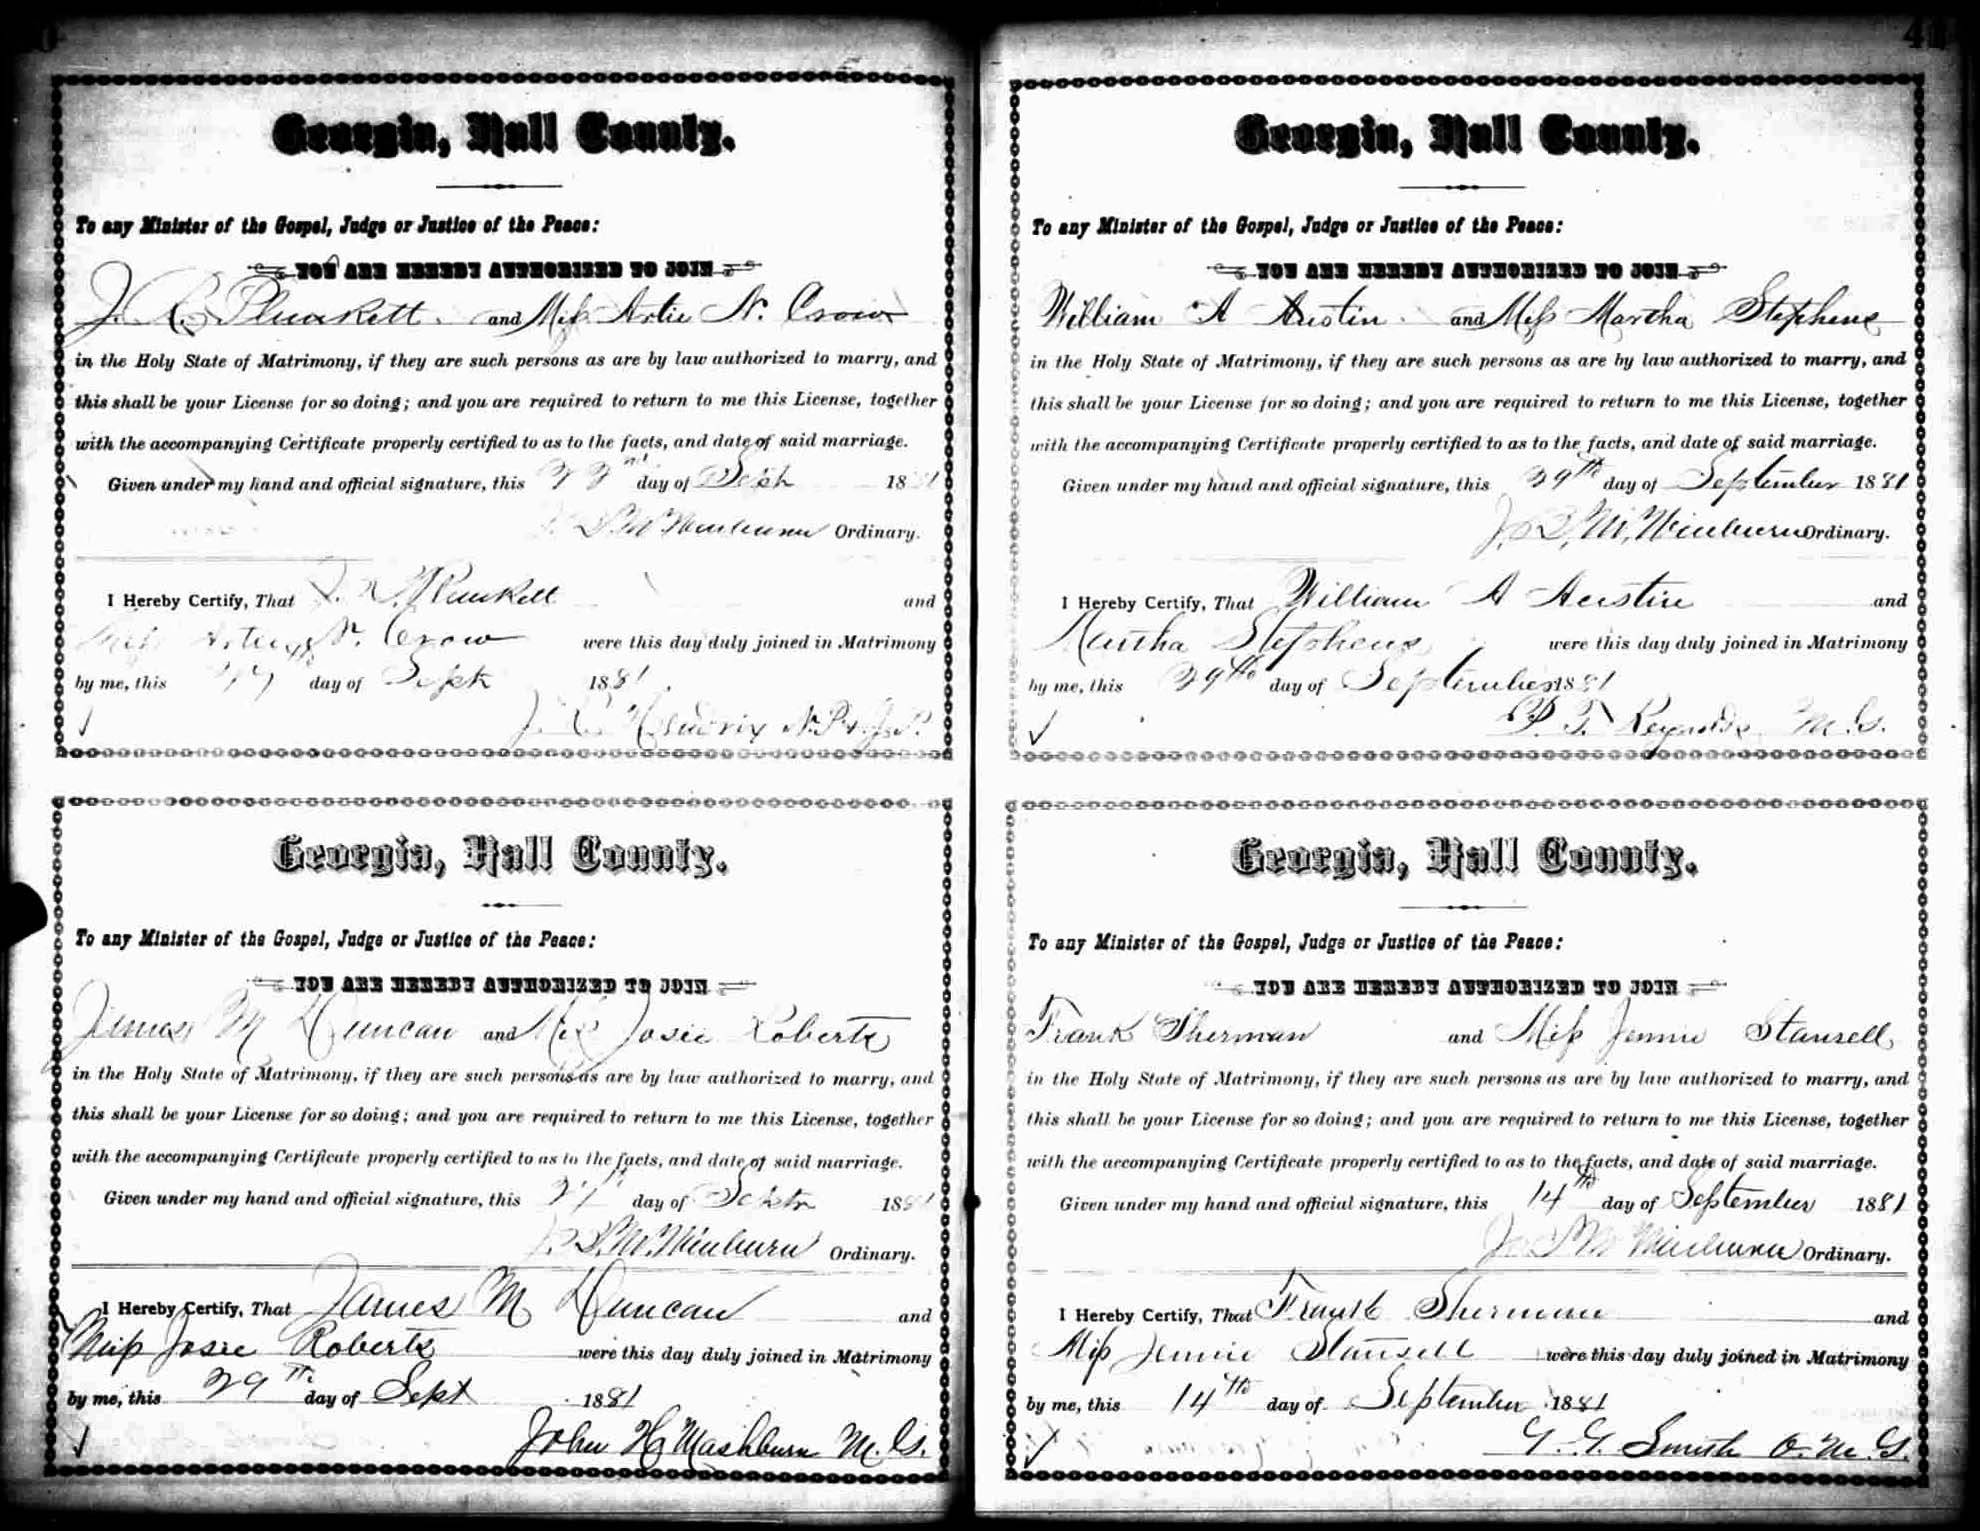 41
Georgia, Hall County.
To any Minister of the Gospel, Judge or Justice of the Peace:
YOU ARE HEREBY AUTHORIZED TO JOIN
J. C. Plunkett. and Miss Artie N. Crow
in the Holy State of Matrimony, if they are such persons as are by law authorized to marry, and
this shall be your License for so doing; and you are required to return to me this License, together
with the accompanying Certificate properly certified to as to the facts, and date of said marriage.
Given under my hand and official signature, this day of Sept 1881
M. Winburn Ordinary.
I Hereby Certify, That Plunkett and
Miss Artie N. Crow were this day duly joined in Matrimony
by me, this 27th day of Sept 1881
J. Hendrix N.P. & J.P.
Georgia, Hall County.
To any Minister of the Gospel, Judge or Justice of the Peace:
YOU ARE HEREBY AUTHORIZED TO JOIN
James M Duncan and Miss Josie Roberts
in the Holy State of Matrimony, if they are such persons as are by law authorized to marry, and
this shall be your License for so doing; and you are required to return to me this License, together
with the accompanying Certificate properly certified to as to the facts, and date of said marriage.
Given under my hand and official signature, this day of Septr 1881
M. Winburn Ordinary.
I Hereby Certify, That James M Duncan and
Miss Josie Roberts were this day duly joined in Matrimony
by me, this 29th day of Sept 1881
John H Mashburn M. G.
Georgia, Hall County.
To any Minister of the Gospel, Judge or Justice of the Peace:
YOU ARE HEREBY AUTHORIZED TO JOIN
William A Austin and Miss Martha Stephens
in the Holy State of Matrimony, if they are such persons as are by law authorized to marry, and
this shall be your License for so doing; and you are required to return to me this License, together
with the accompanying Certificate properly certified to as to the facts, and date of said marriage.
Given under my hand and official signature, this 29th day of September 1881
M. Winburn Ordinary.
I Hereby Certify, That William A Austin and
Martha Stephens were this day duly joined in Matrimony
by me, this 29th day of September 1881
Reynolds M. G.
Georgia, Hall County.
To any Minister of the Gospel, Judge or Justice of the Peace:
YOU ARE HEREBY AUTHORIZED TO JOIN
Frank Sherman and Miss Jennie Stansell
in the Holy State of Matrimony, if they are such persons as are by law authorized to marry, and
this shall be your License for so doing; and you are required to return to me this License, together
with the accompanying Certificate properly certified to as to the facts, and date of said marriage.
Given under my hand and official signature, this 14th day of September 1881
M Winburn Ordinary.
I Hereby Certify, That Frank Sherman and
Miss Jennie Stansell were this day duly joined in Matrimony
by me, this 14th day of September 1881
G. G. Smith O. M. G.